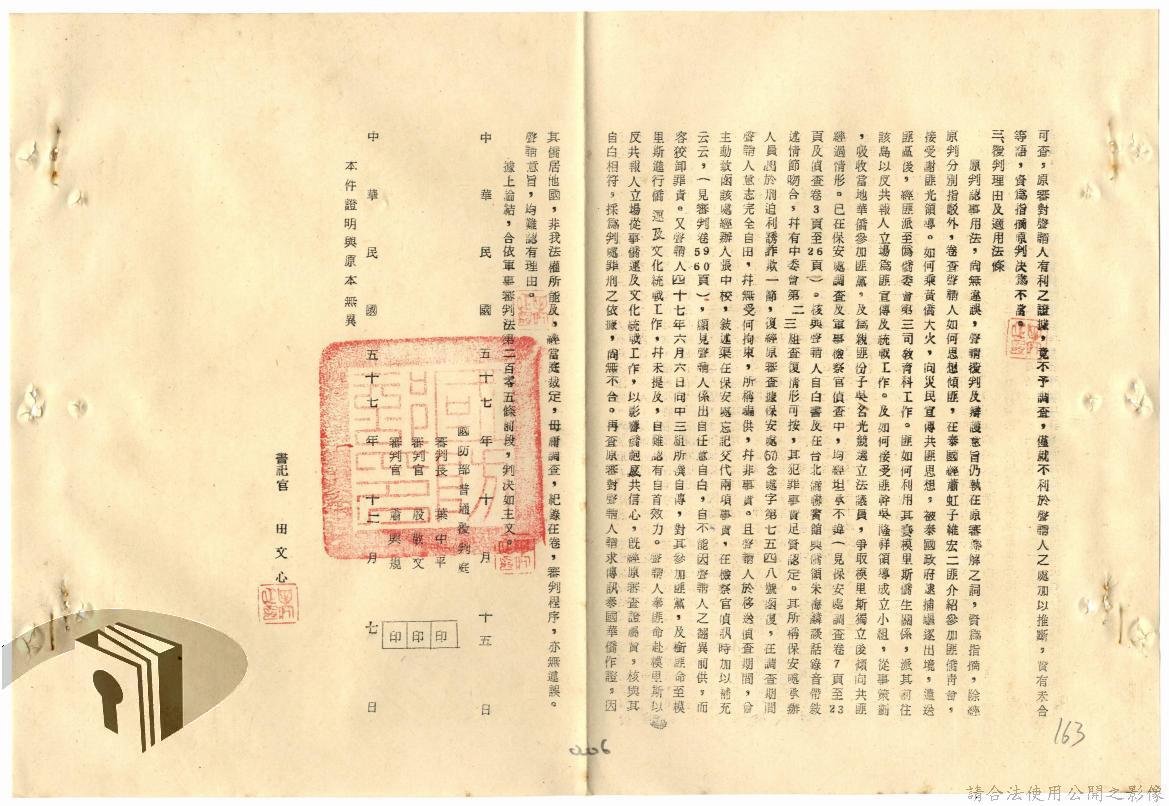 可查，原審對聲請人有利之證據，竟不予調查，僅就不利於聲請人之處加以推斷，實有未合
等語，資為指摘原判決為不當。
三、覆判理由及適用法條
原判認事用法，尚無違誤，聲請覆判及辯護意旨仍執在原審辯解之詞，資為指摘，除經
原判分別指駁外，卷查聲請人如何思想傾匪，在泰國經蕭虹子維宏二匪介紹參加匪僑青會，
接受謝匪光領導。如何乘黃僑大火，向災民宣傳共匪思想，被泰國政府逮捕驅逐出境，遣送
匪區後，經匪派至偽僑委會第三司教育科工作。匪如何利用其實模里斯僑生關係，派其前往
該島以反共報人立場為匪宣傳及統戰工作。及如何接受匪幹吳隆祥領導成立小組，從事策劃
，吸收當地華僑參加匪黨，及為親匪份子吳名光競選立法議員，爭取模里斯獨立後傾向共匪
經過情形。已在保安處調查及軍事檢察官偵查中，均經坦承不諱（見保安處調查卷7頁至23
頁及偵查卷3頁至26頁）。核與聲請人自白書及在台北
述情節吻合，并有中委會第二三組查復情形可按，其犯罪事實足資認定。其所稱保安處承辦
人員出於脅迫利誘詐欺一節，復經原審查據保安處67念處字第七五四八號函復，在調查期間
聲請人意志完全自由，并無受何拘束，所稱騙供，并非事實。且聲請人於移送偵查期間，曾
主動致函該處經辦人張中校，敘述渠在保安處忘記交代兩項事實，在檢察官偵訊時加以補充
云云，（見審判卷90頁56），顯見聲請人係出自任意自白，自不能因聲請人之翻異前供，而
容狡卸罪責。又聲請人四十七年六月六日向中三組所撰自傳，對其參加匪黨，及銜匪命至模
里斯進行僑運及文化統戰工作，并未提及，自難認有自首效力。聲請人奉匪命赴模里斯以
反共報人立場從事僑運及文化統戰工作，以影響僑胞反共信心，既經原審查證屬實，核與其
自白相符，採為判處罪刑之依據，尚無不合。再查原審對聲請人請求傳訊泰國華僑作證，因
其僑居地國，非我法權所能及，經當庭裁定，毋庸調查，紀錄在卷，審判程序，亦無違誤。
聲請意旨，均難認有理由。
據上論結，合依軍事審判法第二百零五條前段，判決如主文。
中華民國五十七年十月十五日
國防部普通覆判庭
審判長 葉中平 印
審判官 殷敬文 印
審判官 蕭興規 印
中華民國五十七年十二月七日
本件證明與原本無異
書記官 田文心
163
206
請合法使用公開之影像